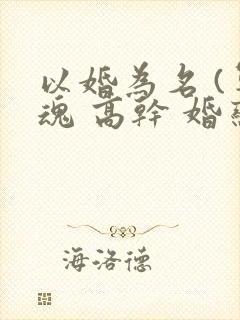 以婚為名(
魂 高幹 婚
海洛德